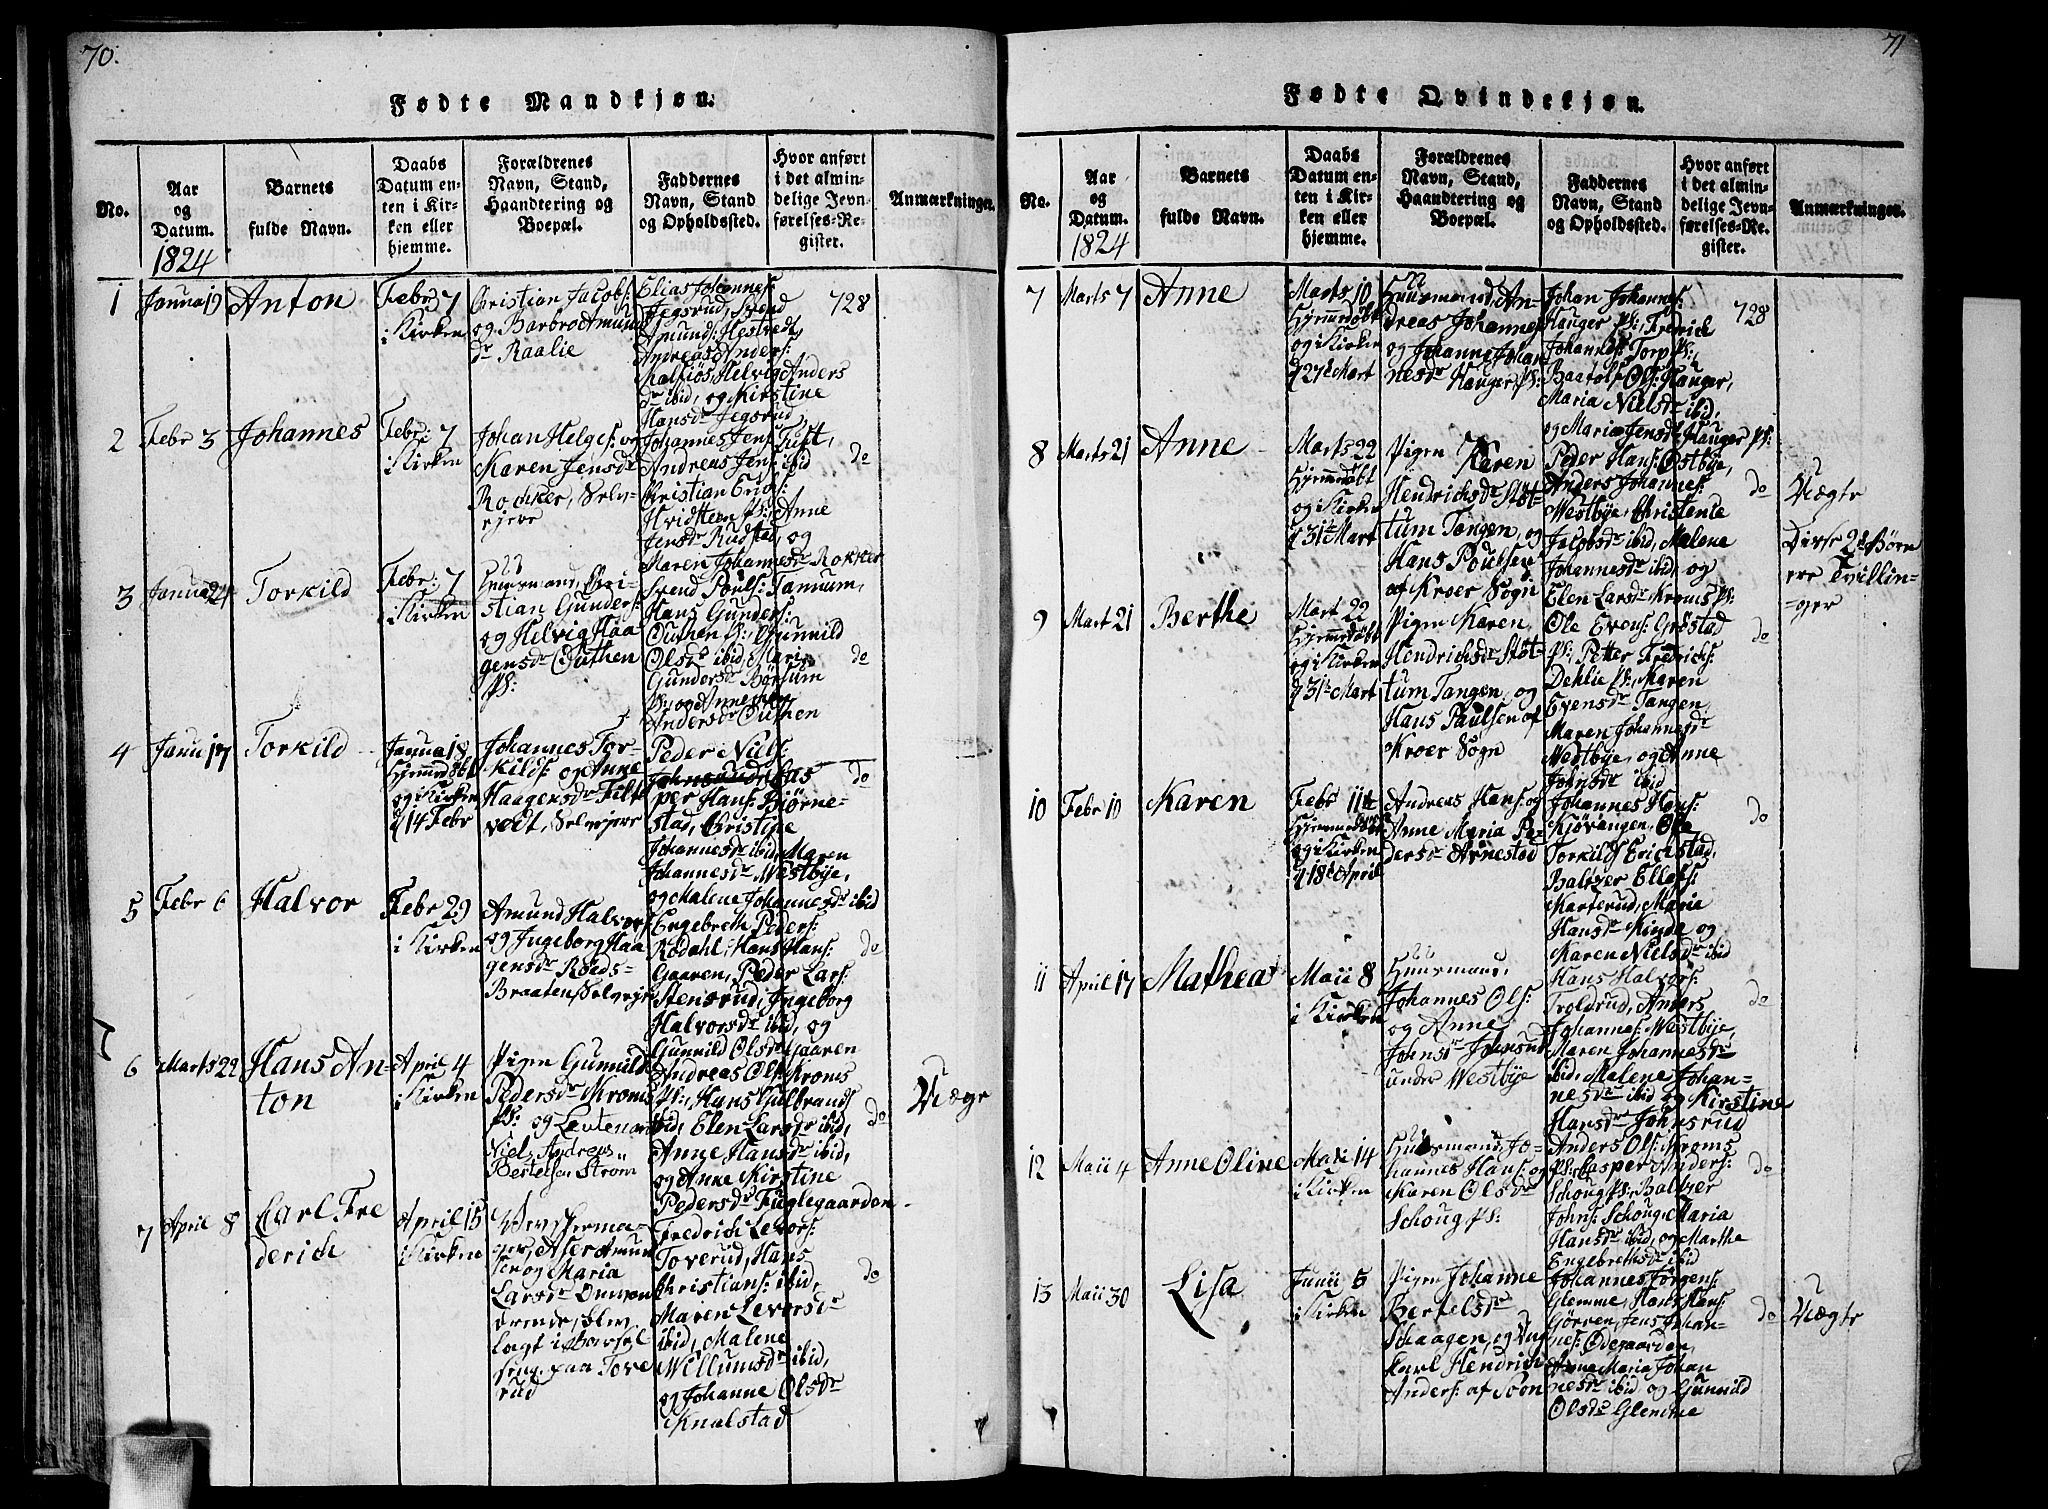 70.
Fødte Mandkjøn.
No.
Aar
og
Datum.
1824
Barnets
fulde Navn.
Daabs
Datum en-
ten i Kir-
ken eller
hjemme.
Forældrenes
Navn, Stand,
Haandtering og
Boepæl.
Faddernes
Navn, Stand
og Opholdssted.
Hvor anført
i det almin-
delige Jevn-
førelses-Re-
gister.
Anmærkninger.
1
Janua 19
Anton
Febr 7
i Kirken
Christian Jacobs:
og Barbro Amund
dr Raalie
Elias Johannes:
Jegsrud, Svend
Amund: Hestvedt,
Andreas Anders:
Malsiøs, Helvig Anders
dr ibid, og Kirstine
Hansdr Jegsrud
728
2
Febr 3
Johannes
Febr: 7
i Kirken
Johan Helges: og
Karen Jensdr
Rocker, Selv-
ejere
Johannes Jens: Tuft,
Andreas Jens: ibid
Christian Erics:
Hvidsteen Ps: Anne
Jensdr Rudstad, og
Maren Johannesdr Rokker
do
3
Janua 24
Torkild
Febr: 7
i Kirken
Huusmand, Chri-
stian Gunders:
og Helvig Haa
gensdr Outhen
Ps:
Svend Pouls: Tamum,
Hans Gunders:
Outhen Ps: Gunnild
Olsdr ibid, Marie
Gundersdr Børsum
Ps: og Anne
Andersdr Outhen
do
4
Janu 17
Torkild
Janua 18
hjemmedøbt
og i Kirken
d 14 Febr
Johannes Tor-
kilds: og Anne
Haagensdr Felt
vedt, Selvejere
Peder Niels:
Johnsrud, Cas
per Hans: Biørne-
stad, Christine
Johannesdr ibid, Maren
Johannesdr Westbye,
og Malene Johannesdr ibid
do
5
Febr 6
Halvor
Febr 29
i Kirken
Amund Halvors:
og Ingeborg Haa
gensdr Røeds-
Braaten, Selvejer
Engebreth Peders:
Kodahl, Hans Hans:
Gaaren, Peder Lars:
Stensrud, Ingeborg
Halvorsdr ibid, og
Gunnild Olsdr Gaaren
do
6
Marts 22
Hans An-
ton
April 4
i Kirken
Pigen Gunnild
Pedersdr Kroms
Ps: og Leutenan
Niels Andreas
Bertelsen Strøm
Andreas Ols: Kroms
Ps:, Hans Gulbrands
ibid, Elen Larsdr ibid,
Anne Hansdr ibid,
og Anne Kirstine
Pedersdr Fuglegaarden
do
Uægte
7
April 8
Carl Fre
derich
April 15
i Kirken
Aser Amund
sen og Maria
Larsdr
lagt i Barsel
seng paa Tove
rud
Fredrich Levors:
Toverud, Hans
Christians: ibid,
Maren Levorsdr
ibid, Malene
Willumsdr ibid,
og Johanne Olsdr
Knulstad
do
71
Fødte Qvindekjøn.
No.
Aar
og
Datum.
1824
Barnets
fulde Navn.
Daabs
Datum en-
ten i Kir-
ken eller
hjemme.
Forældrenes
Navn, Stand,
Haandtering og
Boepæl.
Faddernes
Navn, Stand
og Opholdssted.
Hvor anført
i det almin-
delige Jevn-
førelses-Re-
gister.
Anmærkninger.
7
Marts 7
Anne
Marts 10
hjemmedøbt
og i Kirken
d 27de Mart
Huusmand, An-
dreas Johannes:
og Johanne Johan
nesdr Hauger Ps:
Johan Johannes:
Hauger Ps: Fredrich
Johannes: Torp Ps:,
Baatolf Ols: Hauger,
Maria Nielsdr ibid,
og Maria Jensdr Hauger Ps:
728
8
Marts 21
Anne
Marts 22
hjemmedøbt
og i Kirken
d 31te Mart
Pigen Karen
Hendrichsdr Støt-
tum Tangen, og
Hans Poulsen
af Kroer Sogn
Peder Hans: Østbye,
Anders Johannes:
Westbye, Christense
Jacobsdr ibid, Malene
Johannesdr ibid, og
Elen Larsdr Kroms Ps:
do
Uægte
Disse 2de Børn
ere Tvillin-
ger
9
Mart 21
Berthe
Mart 22
hjemmedøbt
og i Kirken
d 31te Mart
Pigen Karen
Hendrichsdr Støt-
tum Tangen, og
Hans Paulsen af
Kroer Sogn
Ole Evens: Gröstad
Ps:, Petter Fredrichs:
Dehlie Ps: Maren
Evensdr Tangen,
Maren Johannesdr
Westbye, og Anne
Johnsdr ibid
do
10
Febr 10
Karen
Febr 11te
hjemmedøbt
og i Kirken
d 18de April
Andreas Hans: og
Anne Maria Pe-
dersdr Arnestad
Johannes Hans:
Kjøvangen, Ole
Torkilds: Erichstad,
Baltzer Ellefs:
Marterud, Maria
Hansdr Kinde og
Karen Nielsdr ibid
do
11
April 17
Mathea
Maii 8
i Kirken
Huusmand,
Johannes Ols:
og Anne
Johnsdr Johnsrud
under Westbye
Hans Halvors:
Troldrud, Anders
Johannes: Westbye,
Maren Johannesdr
ibid, Malene Johan-
nesdr ibid og Kirstine
Hansdr Johnsrud
do
12
Maii 4
Anne Oline
Maii 14
i Kirken
Huusmand, Jo-
hannes Hans: og
Karen Olsdr
Schoug Ps:
Anders Ols: Kroms
Ps: Casper Anders:
Schoug Ps: Baltzer
Johns: Schoug, Maria
Hansdr ibid, og Marthe
Engebrethsdr ibid
do
13
Maii 30
Lisa
Junii 5
i Kirken
Pigen Johanne
Bertelsdr
Schaagen, og Ung
Karl Hendrich
Anders: af Soon
Johannes Jørgens:
Glemme, Hans Hans:
Gørven, Jens Johan-
nes: Ødegaarden,
Anne Maria Johan
nesdr ibid og Gunnild
Olsdr Glemme
do
Uægte